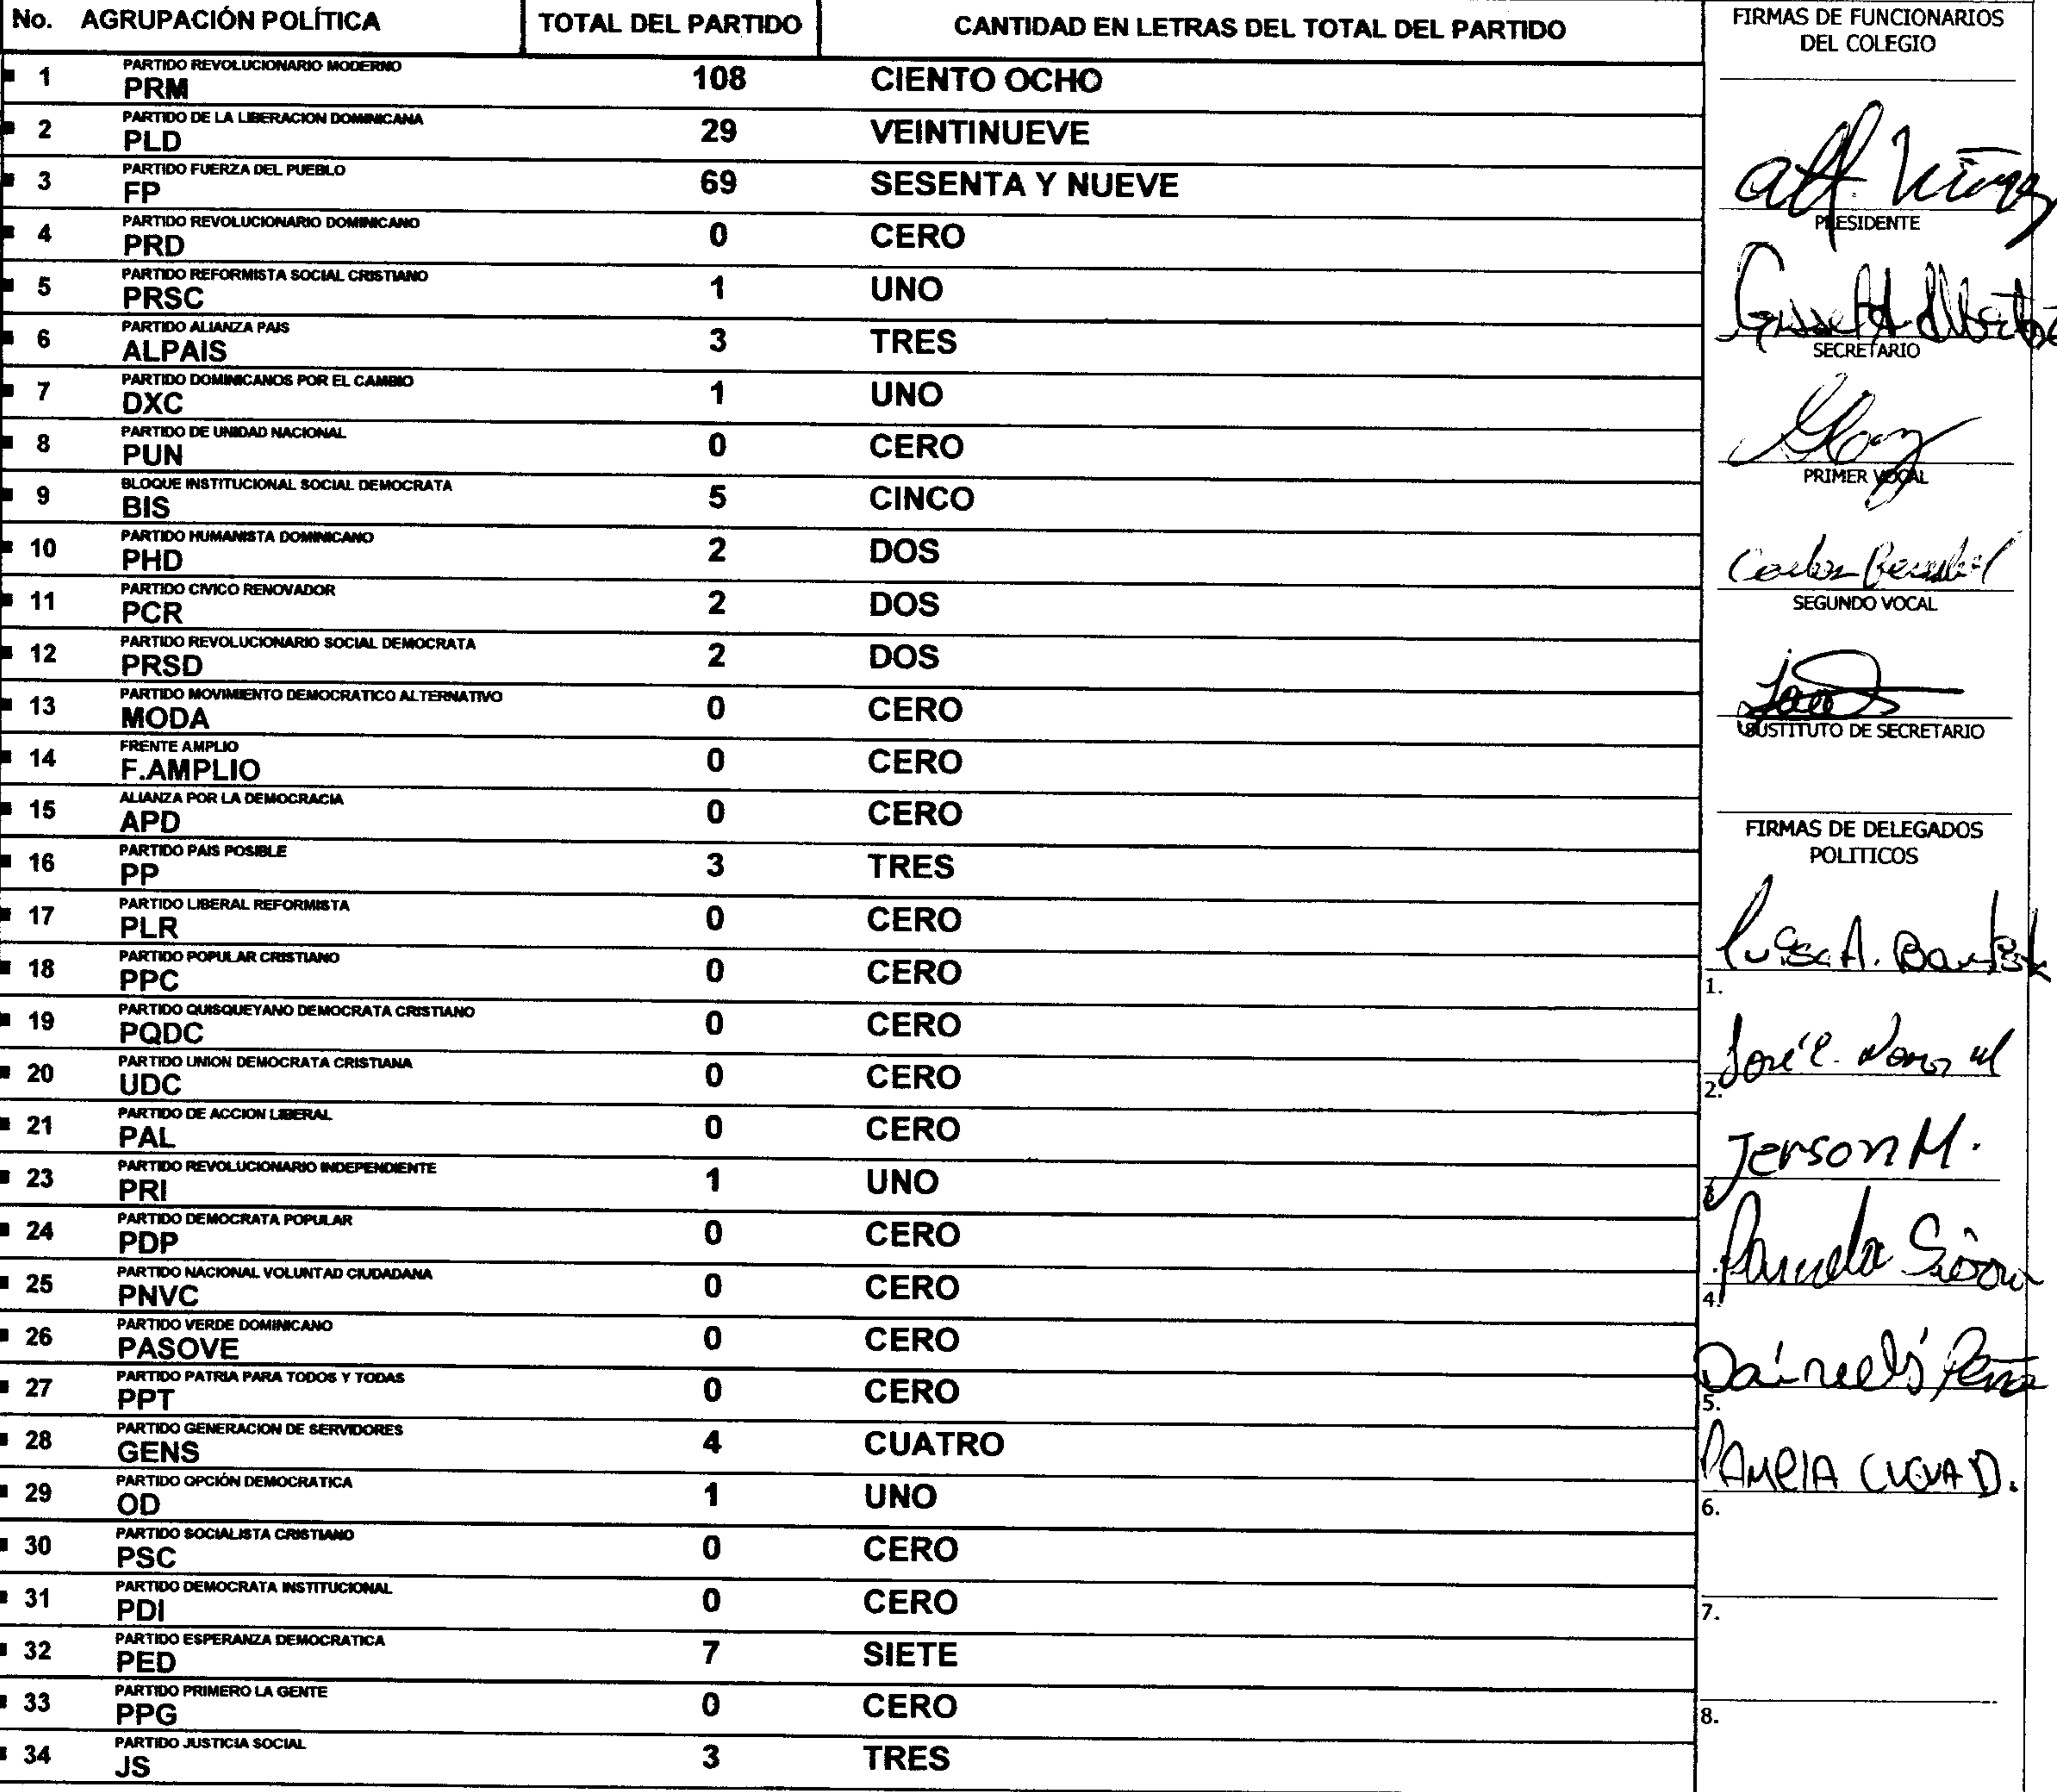 No. AGRUPACIÓN POLÍTICA TOTAL DEL PARTIDO CANTIDAD EN LETRAS DEL TOTAL DEL PARTIDO
PARTIDO REVOLUCIONARIO MODERNO
1 PRM 108 CIENTO OCHO
PARTIDO DE LA LIBERACION DOMINICANA
2 PLD 29 VEINTINUEVE
PARTIDO FUERZA DEL PUEBLO
3 FP 69 SESENTA Y NUEVE
PARTIDO REVOLUCIONARIO DOMINICANO
4 PRD 0 CERO
PARTIDO REFORMISTA SOCIAL CRISTIANO
5 PRSC 1 UNO
PARTIDO ALIANZA PAIS
6 ALPAIS 3 TRES
PARTIDO DOMINICANOS POR EL CAMBIO
7 DXC 1 UNO
PARTIDO DE UNIDAD NACIONAL
8 PUN 0 CERO
BLOQUE INSTITUCIONAL SOCIAL DEMOCRATA
9 BIS 5 CINCO
PARTIDO HUMANISTA DOMINICANO
10 PHD 2 DOS
PARTIDO CIVICO RENOVADOR
11 PCR 2 DOS
PARTIDO REVOLUCIONARIO SOCIAL DEMOCRATA
12 PRSD 2 DOS
PARTIDO MOVIMIENTO DEMOCRATICO ALTERNATIVO
13 MODA 0 CERO
FRENTE AMPLIO
14 F.AMPLIO 0 CERO
ALIANZA POR LA DEMOCRACIA
15 APD 0 CERO
PARTIDO PAIS POSIBLE
16 PP 3 TRES
PARTIDO LIBERAL REFORMISTA
17 PLR 0 CERO
PARTIDO POPULAR CRISTIANO
18 PPC 0 CERO
PARTIDO QUISQUEYANO DEMOCRATA CRISTIANO
19 PQDC 0 CERO
PARTIDO UNION DEMOCRATA CRISTIANA
20 UDC 0 CERO
PARTIDO DE ACCION LIBERAL
21 PAL 0 CERO
PARTIDO REVOLUCIONARIO INDEPENDIENTE
23 PRI 1 UNO
PARTIDO DEMOCRATA POPULAR
24 PDP 0 CERO
PARTIDO NACIONAL VOLUNTAD CIUDADANA
25 PNVC 0 CERO
PARTIDO VERDE DOMINICANO
26 PASOVE 0 CERO
PARTIDO PATRIA PARA TODOS Y TODAS
27 PPT 0 CERO
PARTIDO GENERACION DE SERVIDORES
28 GENS 4 CUATRO
PARTIDO OPCIÓN DEMOCRATICA
29 OD 1 UNO
PARTIDO SOCIALISTA CRISTIANO
30 PSC 0 CERO
PARTIDO DEMOCRATA INSTITUCIONAL
31 PDI 0 CERO
PARTIDO ESPERANZA DEMOCRATICA
32 PED 7 SIETE
PARTIDO PRIMERO LA GENTE
33 PPG 0 CERO
PARTIDO JUSTICIA SOCIAL
34 JS 3 TRES
FIRMAS DE FUNCIONARIOS
DEL COLEGIO
PRESIDENTE
SECRETARIO
PRIMER VOCAL
SEGUNDO VOCAL
SUSTITUTO DE SECRETARIO
FIRMAS DE DELEGADOS
POLITICOS
1.
2. José
3. Jerson M.
4.
5. Peña
6.
7.
8.